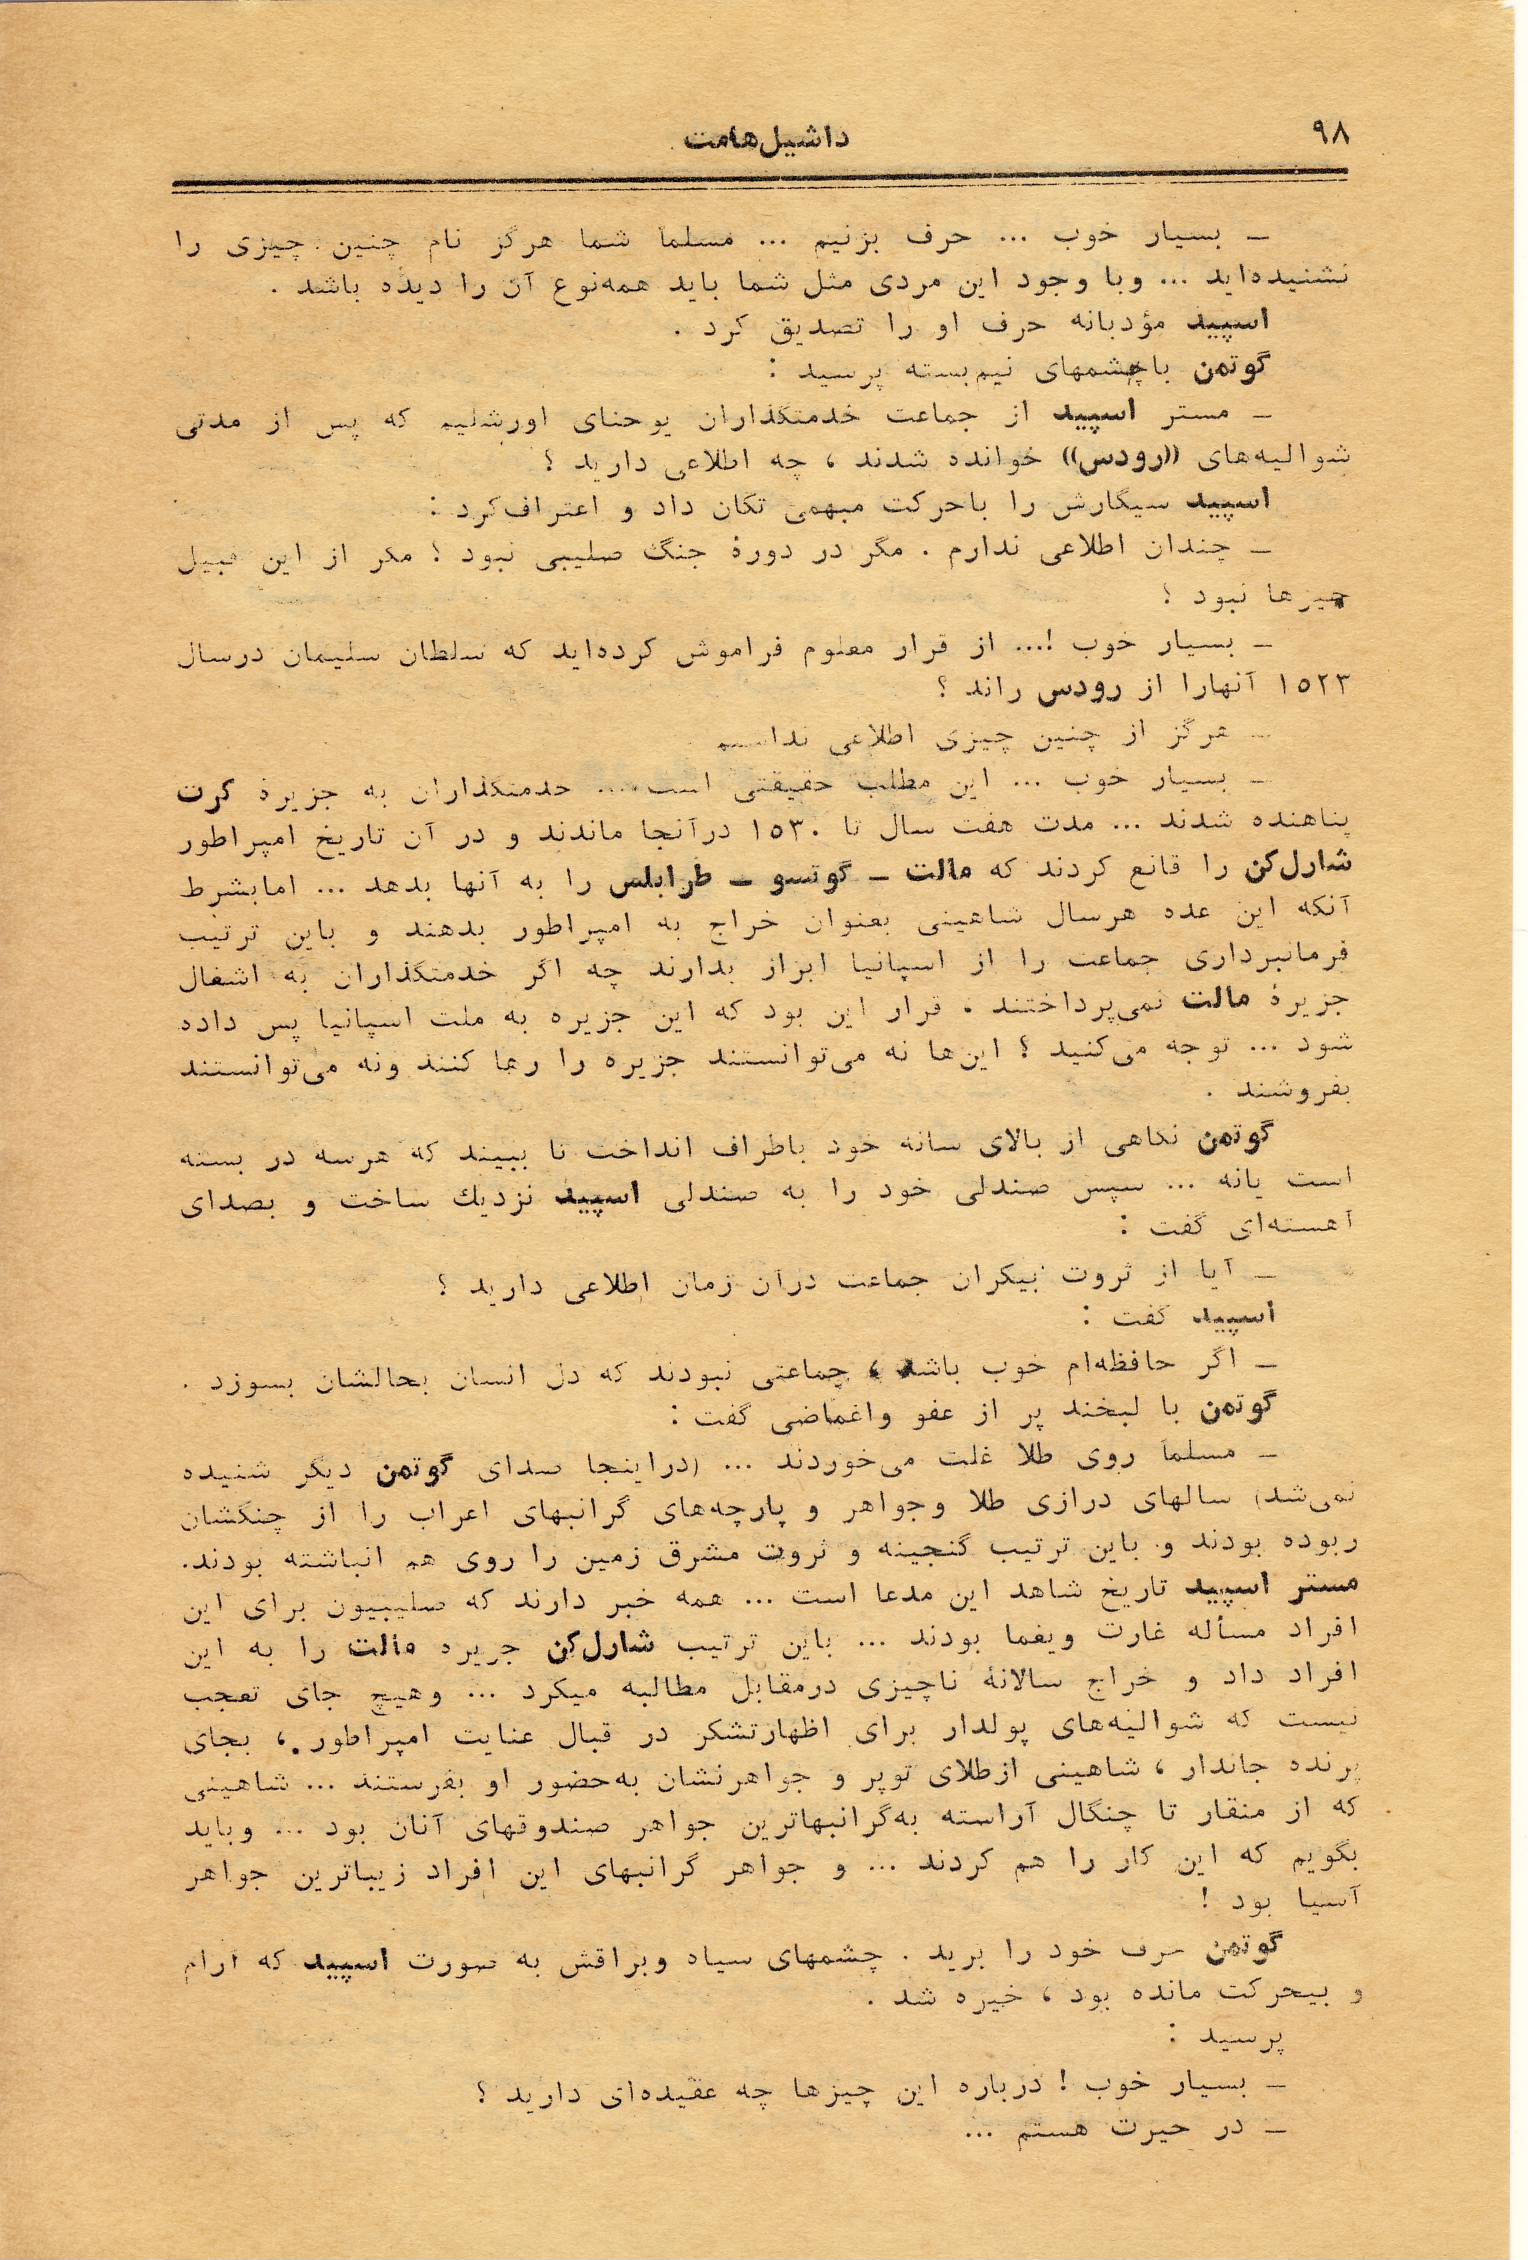 ۹۸
داشیل‌هامت
ـ بسیار خوب ... حرف بزنیم ... مسلماً شما هرگز نام چنین چیزی را
نشنیده‌اید ... وبا وجود این مردی مثل شما باید همه‌نوع آن را دیده باشد .
اسپید مؤدبانه حرف او را تصدیق کرد .
گوتمن باچشمهای نیم‌بسته پرسید :
ـ مستر اسپید از جماعت خدمتگذاران یوحنای اورشلیم که پس از مدتی
شوالیه‌های ((رودس)) خوانده شدند ، چه اطلاعی دارید ؟
اسپید سیگارش را باحرکت مبهمی تکان داد و اعتراف‌کرد :
ـ چندان اطلاعی ندارم . مگر در دورۀ جنگ صلیبی نبود ؟ مگر از این قبیل
چیزها نبود ؟
ـ بسیار خوب !... از قرار معلوم فراموش کرده‌اید که سلطان سلیمان درسال
۱۵۲۳ آنهارا از رودس راند ؟
ـ هرگز از چنین چیزی اطلاعی نداشتم
ـ بسیار خوب ... این مطلب حقیقتی است .... خدمتگذاران به جزیرۀ کرت
پناهنده شدند ... مدت هفت سال تا ۱۵۳۰ درآنجا ماندند و در آن تاریخ امپراطور
شارل‌کن را قانع کردند که مالت ـ گوتسو ـ طرابلس را به آنها بدهد ... امابشرط
آنکه این عده هرسال شاهینی بعنوان خراج به امپراطور بدهند و باین ترتیب
فرمانبرداری جماعت را از اسپانیا ابراز بدارند چه اگر خدمتگذاران به اشغال
جزیرۀ مالت نمی‌پرداختند . قرار این بود که این جزیره به ملت اسپانیا پس داده
شود ... توجه می‌کنید ؟ این‌ها نه می‌توانستند جزیره را رها کنند ونه می‌توانستند
بفروشند .
گوتمن نگاهی از بالای شانه خود باطراف انداخت تا ببیند که هرسه در بسته
است یانه ... سپس صندلی خود را به صندلی اسپید نزدیك ساخت و بصدای
آهسته‌ای گفت :
ـ آیا از ثروت بیکران جماعت درآن زمان اطلاعی دارید ؟
اسپید گفت :
ـ اگر حافظه‌ام خوب باشد ، جماعتی نبودند که دل انسان بحالشان بسوزد .
گوتمن با لبخند پر از عفو واغماضی گفت :
ـ مسلماً روی طلا غلت می‌خوردند ... (دراینجا صدای گوتمن دیگر شنیده
نمی‌شد) سالهای درازی طلا وجواهر و پارچه‌های گرانبهای اعراب را از چنگشان
ربوده بودند و باین ترتیب گنجینه و ثروت مشرق زمین را روی هم انباشته بودند.
مستر اسپید تاریخ شاهد این مدعا است ... همه خبر دارند که صلیبیون برای این
افراد مسأله غارت ویغما بودند ... باین ترتیب شارل‌کن جزیره مالت را به این
افراد داد و خراج سالانۀ ناچیزی درمقابل مطالبه میکرد ... وهیچ جای تعجب
نیست که شوالیه‌های پولدار برای اظهارتشکر در قبال عنایت امپراطور ، بجای
پرنده جاندار ، شاهینی ازطلای توپر و جواهرنشان به‌حضور او بفرستند ... شاهینی
که از منقار تا چنگال آراسته به‌گرانبهاترین جواهر صندوقهای آنان بود ... وباید
بگویم که این کار را هم کردند ... و جواهر گرانبهای این افراد زیباترین جواهر
آسیا بود !
گوتمن حرف خود را برید . چشمهای سیاه وبراقش به صورت اسپید که آرام
و بیحرکت مانده بود ، خیره شد .
پرسید :
ـ بسیار خوب ! درباره این چیزها چه عقیده‌ای دارید ؟
ـ در حیرت هستم ...